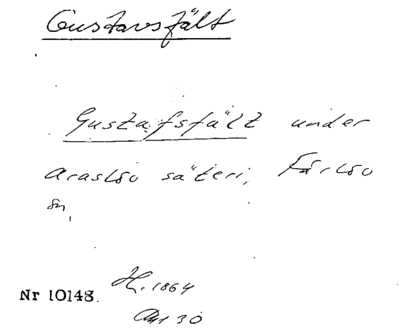 Gustavsfält
Gustafsfält under
Araslöv säteri, Färlöv
sn,
H. 1864
Nr 10148.
30